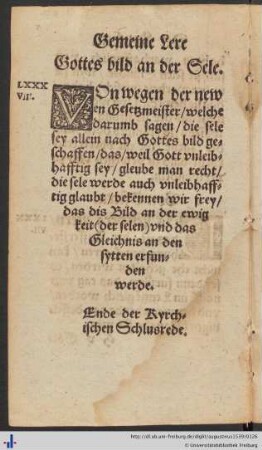 Gemeine Lere
Gottes bild an der Sele.
LXXX
VII.
VOn wegen der new
en Gesetzmeister/welche
darumb sagen/die sele
sey allein nach Gottes bild ge-
schaffen/das/weil Gott vnleib-
hafftig sey/gleube man recht/
die sele werde auch vnleibhaff-
tig glaubt/bekennen wir frey/
das dis Bild an der ewig
keit (der selen) vnd das
Gleichnis an den
sytten erfun-
den
werde.
Ende der Kyrch-
ischen Schlusrede.